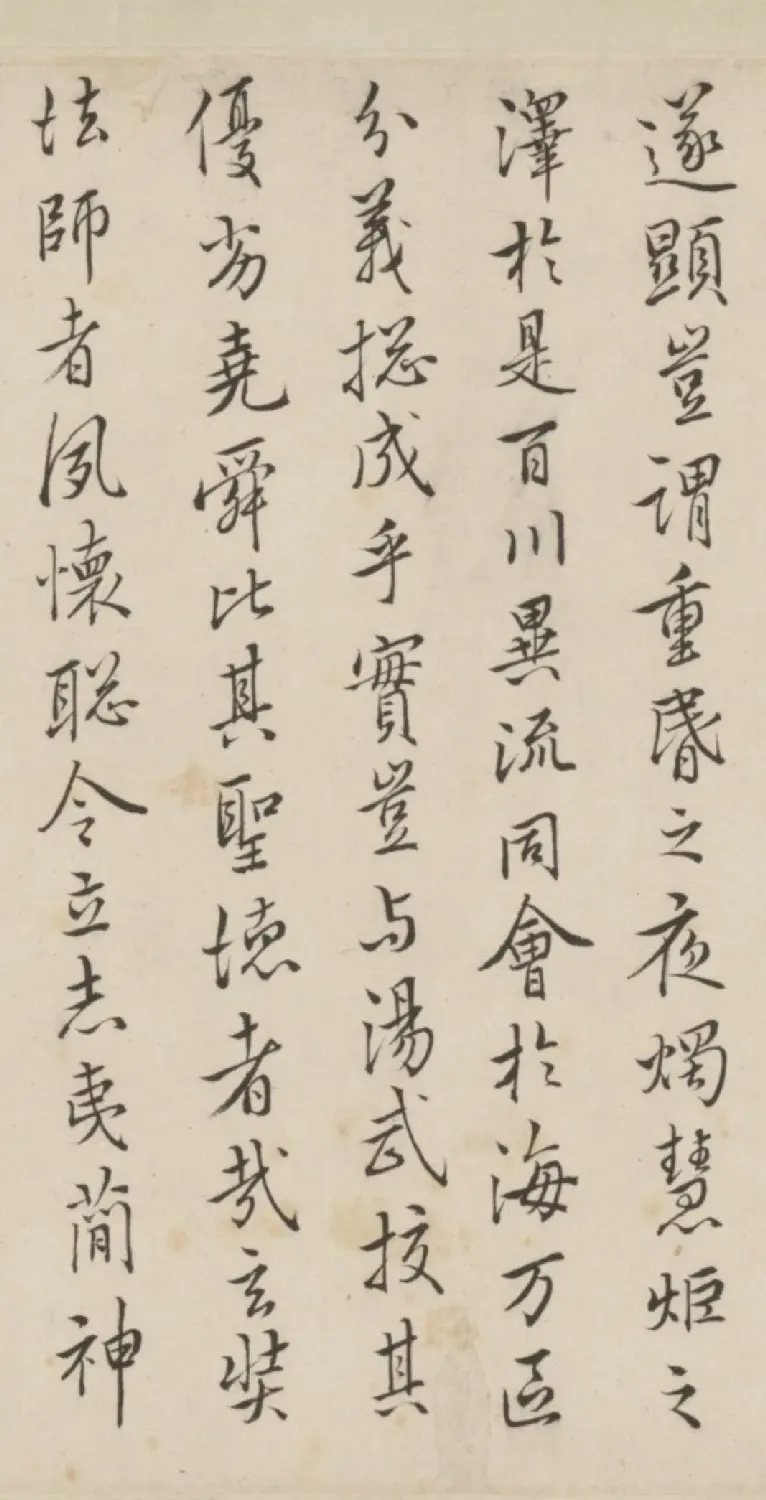 遂顯豈謂重昬之夜燭慧炬之
澤於是百川異流同會於海万區
分義揔成乎實豈与湯武挍其
優劣堯舜比其聖德者哉玄奘
法師者夙懷聡令立志夷簡神